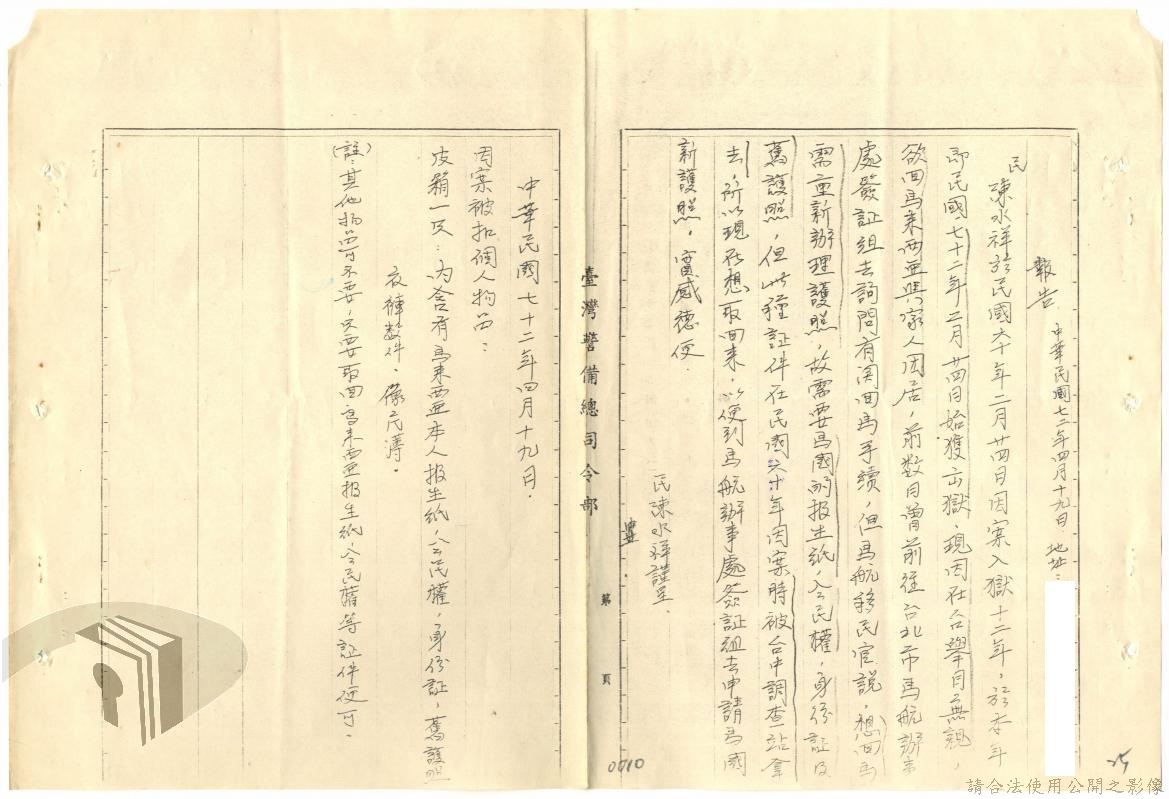 報告 中華民國七二年四月十九日 地址:
民陳水祥於民國六十年二月廿四日因案入獄十二年,於本年
即民國七十二年二月廿四日始獲出獄,現因在台舉目無親,
欲回馬來西亞與家人因居,前数日曾前往台北市馬航辦事
處簽証組去詢問有関回馬手續,但馬航移民官説,想回馬
需重新辦理護照,故需要馬國的报生紙,公民權,身份証及
舊護照,但此種証件在民國六十年因案時被台中調查站拿
去,所以現在想取回来,以便到馬航辦事處簽証組去申請馬國
新護照,實感德便.
民陳水祥謹呈.
臺灣警備總司令部
第 頁
0010
中華民國七十二年四月十九日.
因案被扣個人物品:
皮箱一只:内含有馬來西亜本人报生紙,公民權,身份証,舊護照
衣褲数件,像片簿.
(註):其他物品可不要,只要取回馬来西亜报生紙,公民權等証件便可.
25
請合法使用公開之影像